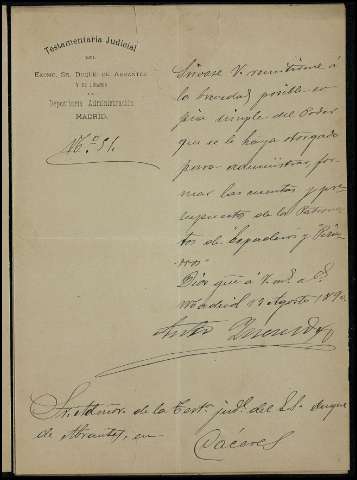 Testamentaría Judicial
DEL
EXCMO. SR. DUQUE DE ABRANTES
Y DE LINARES
Depositaría Administración
MADRID.
N.º 51.
Sírvase V. remitirme á
la brevedad posible co-
pia simple del Poder
que se le haya otorgado
para administrar, for-
mar las cuentas y pre-
supuesto de los Patrona-
tos de Espaderos y
Dios gue á V. m.s a.s
Madrid 13 Agosto 1890
Sr. Admor. de la Test.ª jud.l del S.S. duque
de Abrantes, en
Cáceres